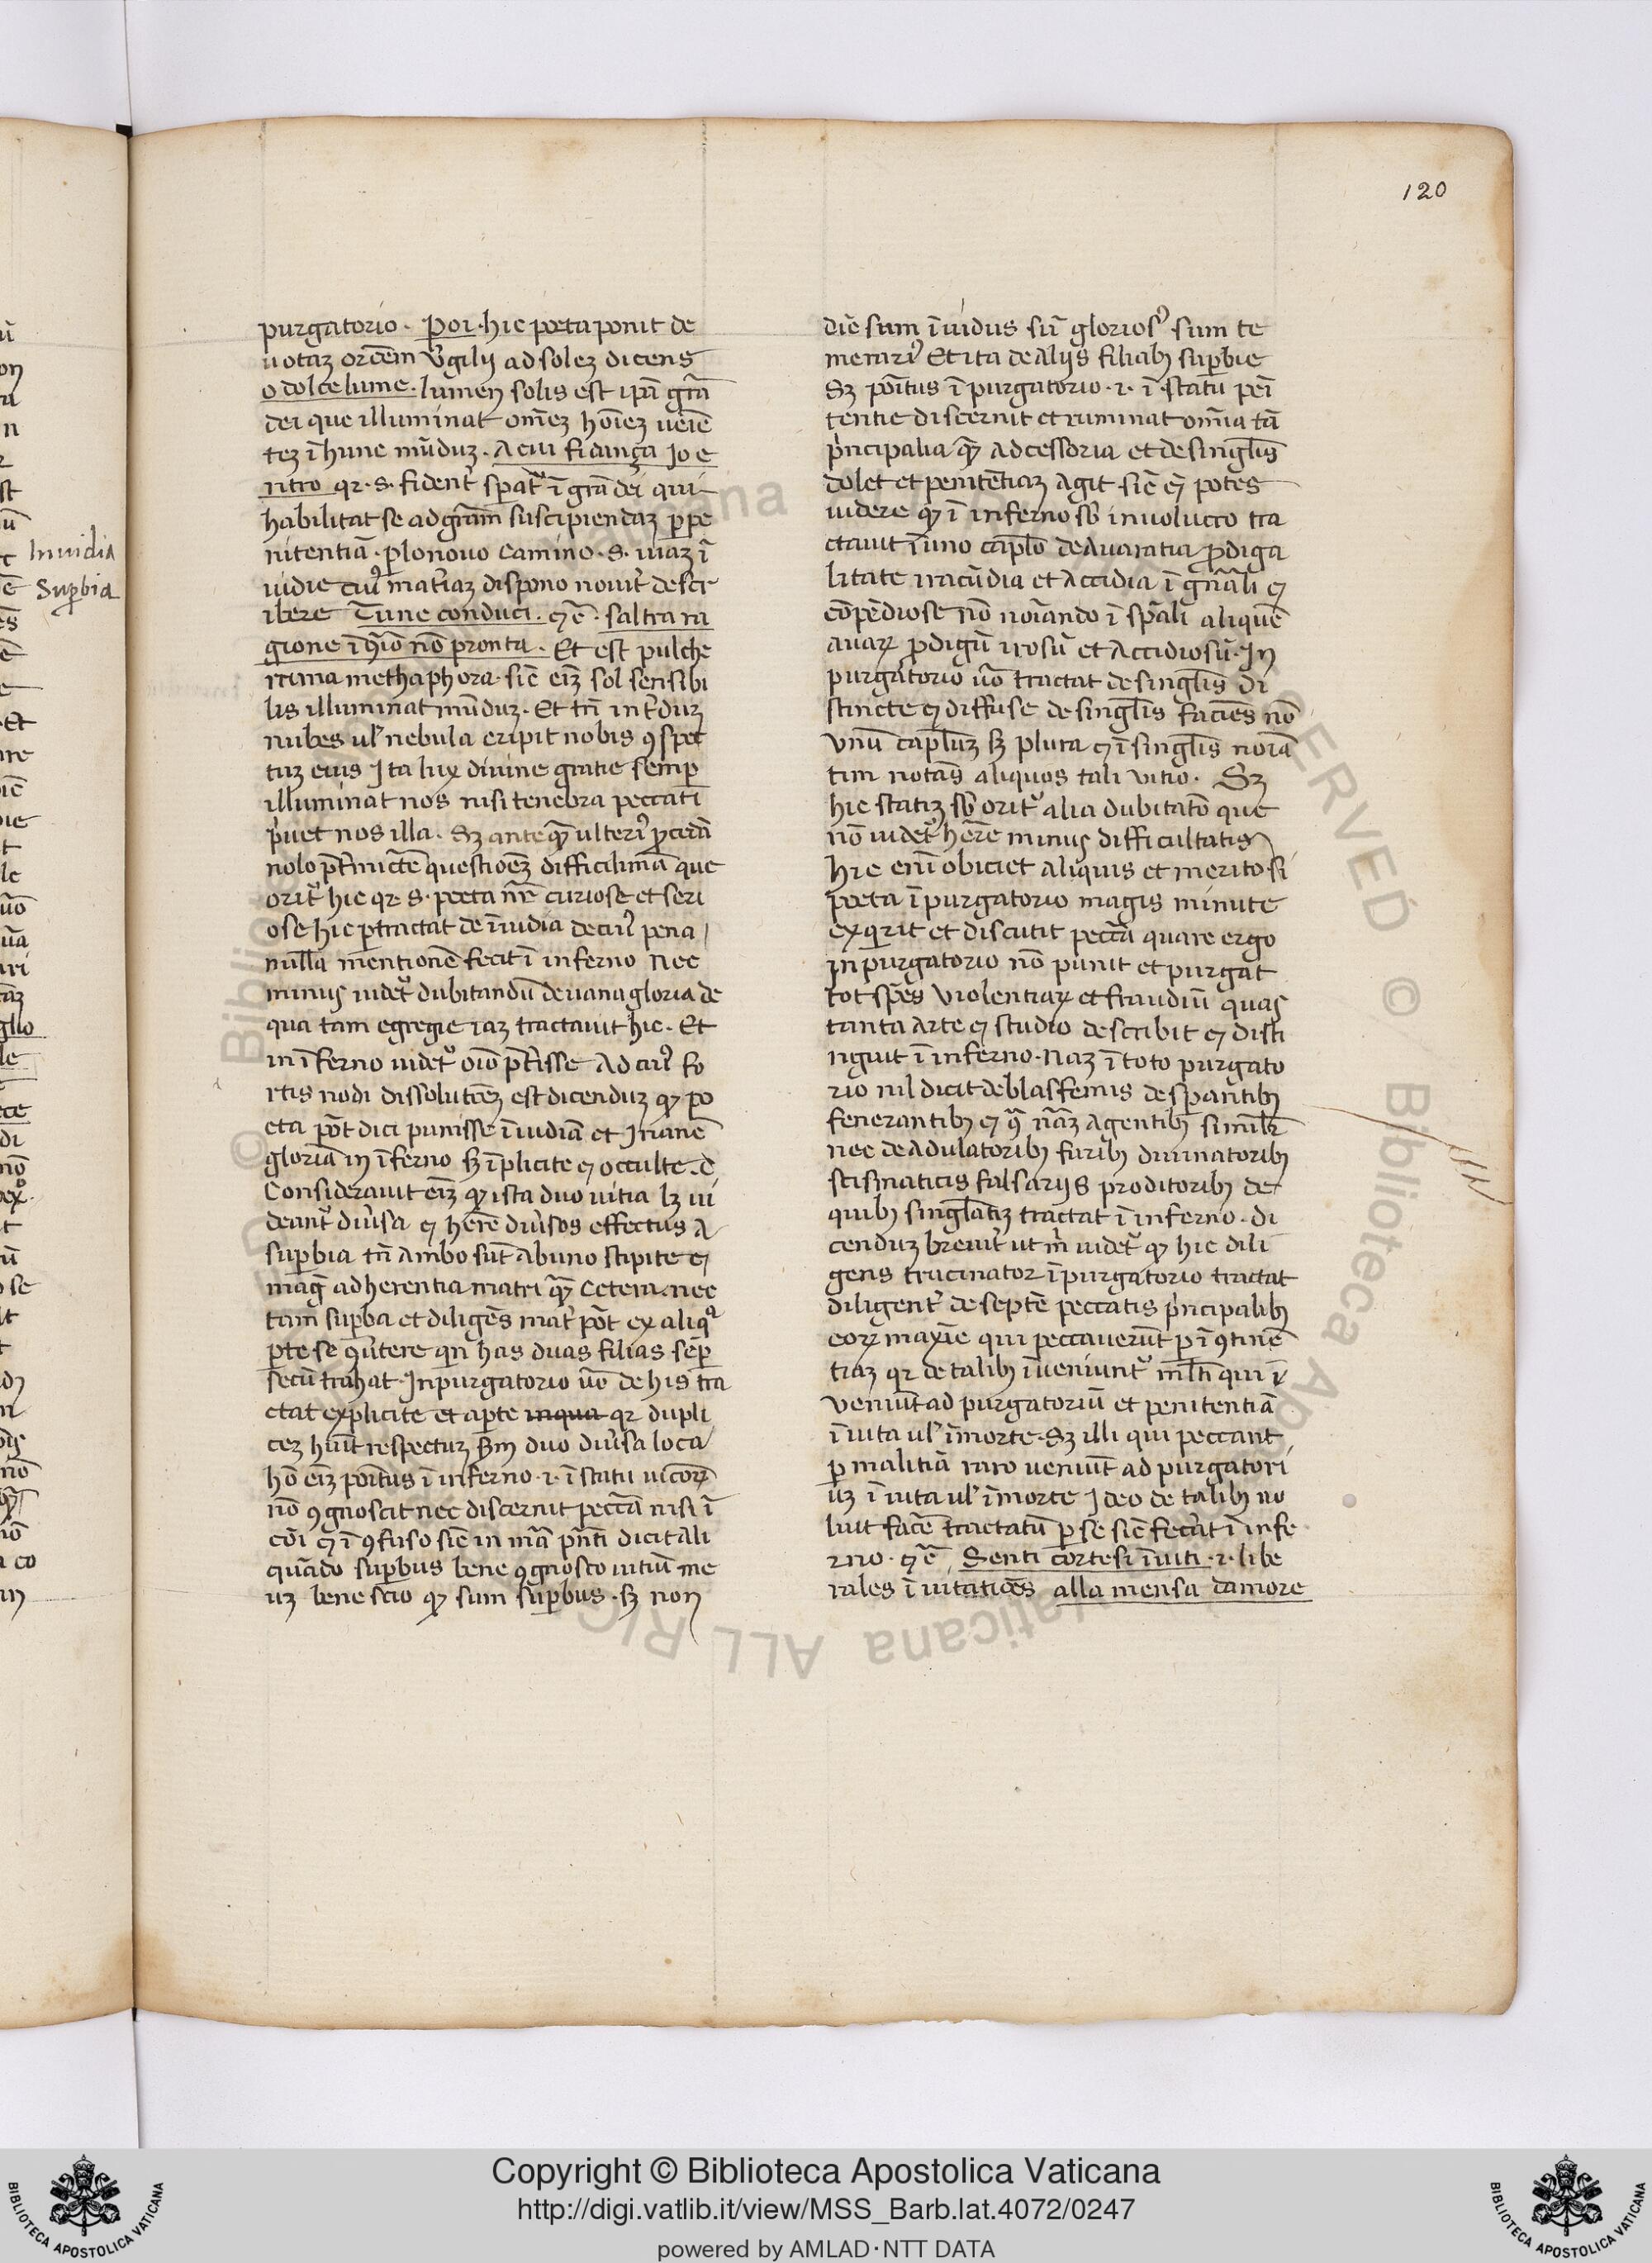 120
Inuidia
Suꝑbia
purgatorio · Poi · hic poeta ponit de
uotaꝫ orōēm Virgilij ad soleꝫ dicens
o dolce lume · lumen solis est ip̄a grā
dei que illuminat om̄eꝫ hoīeꝫ ueniē
teꝫ ī hunc mūduꝫ · A cui fidança Io e
ntro qꝛ · s · fident̄ speratᷣ ī grā dei qui
habilitat se ad grām suscipiendaꝫ ꝑ pe
nitentiā · ꝑ lo nouo camino · s · uiaꝫ ī
uidie cuiꝰ mat̄iaꝫ dispono nouit̄ descr
ibere Tu ne conduci · ⁊ c̄ · saltra ra
gione ī ꝯtrio nō pronta · Et est pulche
rrima methaphora · sic̄ eīꝫ sol sensibi
lis illuminat mūduꝫ · Et tn̄ int̄duꝫ
nubes ul̓ nebula eripit nobis ꝯspec
tuꝫ eius Ita lux diuine gratie semꝑ
illuminat nos nisi tenebra peccati
p̓uet nos illa · Sꝫ ante qꝫ ulteriꝰ ꝓcedā
nolo p̄t̄mictē questiōeꝫ difficilimā que
oritᷣ hic qꝛ · s · poeta nr̄ curiose et seri
ose hic ꝑtractat de īuidia de cuiꝰ pena
nulla mentionē fecit ī inferno Nec
minus uidetᷣ dubitandū de uana gloria de
qua tam egregie iaꝫ tractauit hic · Et
in īferno uidetᷣ oīo p̄t̄isse Ad cuiꝰ fo
rtis nodi dissolutiōeꝫ est dicenduꝫ qꝫ po
eta pōt dici punisse īuidiā et Inanē
gloriā in īferno sꝫ īplicite ⁊ occulte ·
Considerauit eīꝫ qꝫ ista duo uitia lꝫ ui
deantᷣ diūsa ⁊ hēre diūsos effectus a
suꝑbia tn̄ ambo sūt ab uno stipite ⁊
mag̓ adherentia matri qꝫ cetera · nec
tam suꝑba et diligēs mat̓ pōt ex aliqᷓ
ꝑte se ꝯūtere qn̄ has duas filias sēꝑ
secū trahat · In purgatorio ūo de his tra
ctat explicite et aꝑte inqua qꝛ dupli
ceꝫ hūit respectuꝫ s̄m duo diūsa loca
hō eīꝫ poītus ī inferno · i · ī statu uicioꝝ
nō ꝯgnoscit nec discernit pecc̄a nisi ī
cōi ⁊ ī ꝯfuso sic̄ in mᷓa pn̄ti dicit ali
quādo suꝑbus bene ꝯgnosco uitiū me
uꝫ bene scio qꝫ sum suꝑbus · sꝫ non
dic̄ sum īuidus sū gloriosꝰ sum te
merariꝰ Et ita de alijs filiabꝫ suꝑbie
Sꝫ poītus ī purgatorio · i · ī statu peī
tentie discernit et ruminat oīa tā
p̓ncipalia qꝫ adcessoria et de singl̄is
dolet et penitētiaꝫ agit sic̄ ⁊ potes
uidere qꝫ ī inferno sb̄ inuolucro tra
ctauit ī uno capl̄o de Auaratia ꝓdiga
litate iracūdia et Accidia ī gn̄ali ⁊
cōpēdiose nō noīando ī sp̄ali aliquē
auaꝝ ꝓdigū irosū et Accidiosū · In
purgatorio ūo tractat de singl̄is di
stincte ⁊ diffuse de singl̄is faciēs nō
vnū capl̄uꝫ sꝫ plura ⁊ ī singl̄is noīa
tim notās aliquos tali vitio · Sꝫ
hic statiꝫ sb̄oritᷣ alia dubitatō que
nō uidetᷣ hēre minus difficultatis
hic enī obiciet aliquis et merito si
poeta ī purgatorio magis minute
exq̓rit et discutit pecc̄a quare ergo
in purgatorio nō punit et purgat
tot sp̄es violentiaꝝ et fraudiū quas
tanta arte ⁊ studio describit ⁊ disti
nguit ī inferno · Naꝫ ī toto purgato
rio nil dicit de blasfemis desꝑantibꝫ
fenerantibꝫ ⁊ ꝯᷓ nāꝫ agentibꝫ simil̄r
nec de Adulatoribꝫ furibꝫ diuinatoribꝫ
scismaticis falsarijs proditoribꝫ de
quibꝫ singlatiꝫ tractat ī inferno · di
cenduꝫ breuit̄ ut m̓ uidetᷣ qꝫ hic dili
gens trucinator ī purgatorio tractat
diligent̄ de septē peccatis p̓ncipalibꝫ
eoꝝ maxīe qui peccauerūt ꝑ īꝯtinē
tiaꝫ qꝛ de talibꝫ īueniuntᷣ ml̄ti qui ī
veniūt ad purgatoriū et penitentiā
ī uita ul̓ ī morte · Sꝫ illi qui peccant
ꝑ malitiā raro ueniūt ad purgatori
uꝫ ī uita ul̓ ī morte Ideo de talibꝫ no
luit facē tractatū ꝑ se sic̄ fecat ī infe
rno · ⁊ c̄ Senti cortesi īuiti · i · libe
rales īuitatiōes alla mensa damore
Copyright © Biblioteca Apostolica Vaticana
http://digi.vatlib.it/view/MSS_Barb.lat.4072/0247
powered by AMLAD·NTT DATA